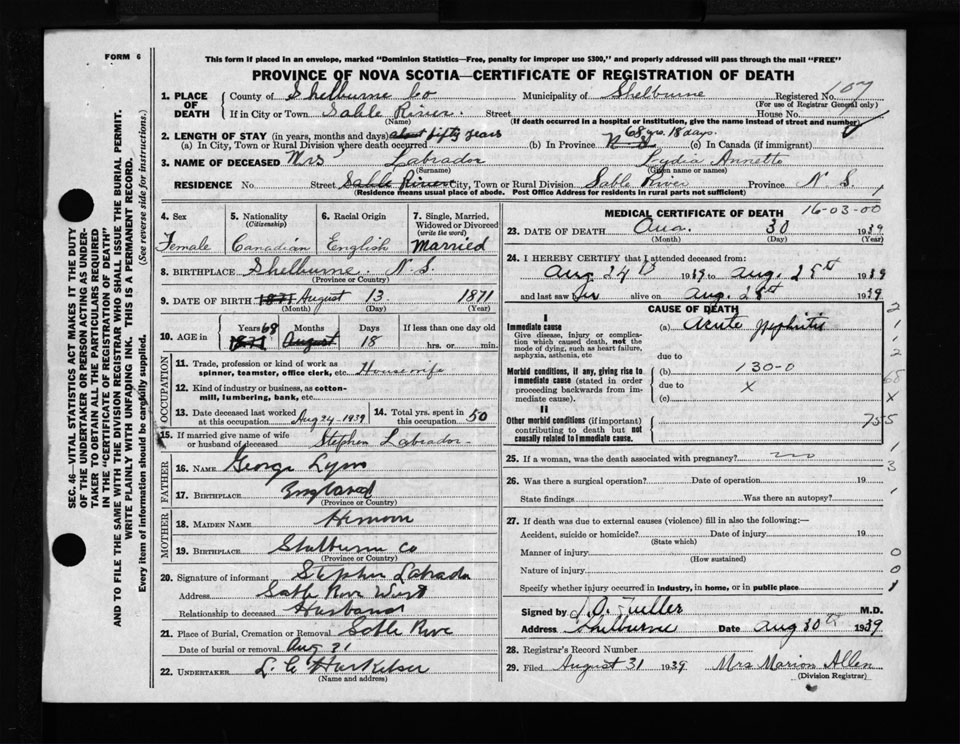 FORM 6
This form if placed in an envelope, marked "Dominion Statistics—Free, penalty for improper use $300," and properly addressed will pass through the mail "FREE"
PROVINCE OF NOVA SCOTIA—CERTIFICATE OF REGISTRATION OF DEATH
1. PLACE OF DEATH
County of Shelburne Co Municipality of Shelburne Registered No. 107
(For use of Registrar General only)
If in City or Town Sable River Street House No.
(Name) (If death occurred in a hospital or institution, give the name instead of street and number)
2. LENGTH OF STAY (in years, months and days) about fifty years 68 yrs. 18 days.
(a) In City, Town or Rural Division where death occurred (b) In Province N S (c) In Canada (if immigrant)
3. NAME OF DECEASED Mrs Labrador Lydia Annetta
(Surname) (Given name or names)
RESIDENCE No. Street Sable River City, Town or Rural Division Sable River Province N S.
(Residence means usual place of abode. Post Office Address for residents in rural parts not sufficient)
4. Sex Female
5. Nationality (Citizenship) Canadian
6. Racial Origin English
7. Single, Married, Widowed or Divorced (write the word) Married
8. BIRTHPLACE Shelburne. N.S.
(Province or Country)
9. DATE OF BIRTH 1871 August 13 1871
(Month) (Day) (Year)
10. AGE in Years 68 1871 Months August Days 18 If less than one day old hrs. or min.
OCCUPATION
11. Trade, profession or kind of work as spinner, teamster, office clerk, etc. Housewife
12. Kind of industry or business, as cotton-mill, lumbering, bank, etc.
13. Date deceased last worked at this occupation Aug 24-1939
14. Total yrs. spent in this occupation 50
15. If married give name of wife or husband of deceased Stephen Labrador
FATHER
16. NAME George Lyons
17. BIRTHPLACE England
(Province or Country)
MOTHER
18. MAIDEN NAME
19. BIRTHPLACE Shelburne Co
(Province or Country)
20. Signature of informant Stephen Labrador
Address Sable River West
Relationship to deceased Husband
21. Place of Burial, Cremation or Removal Sable River
Date of burial or removal Aug 31
22. UNDERTAKER L. C.
(Name and address)
MEDICAL CERTIFICATE OF DEATH 16-03-00
23. DATE OF DEATH Aug. 30 1939
(Month) (Day) (Year)
24. I HEREBY CERTIFY that I attended deceased from:
Aug 24th 1939 to Aug. 28th 1939
and last saw her alive on Aug. 28th 1939
CAUSE OF DEATH
I
Immediate cause (a) Acute Nephritis
Give disease, injury or complication which caused death, not the mode of dying, such as heart failure, asphyxia, asthenia, etc
due to
Morbid conditions, if any, giving rise to immediate cause (stated in order proceeding backwards from immediate cause). (b) 130-0
due to X
(c)
II
Other morbid conditions (if important) contributing to death but not causally related to immediate cause. 755
25. If a woman, was the death associated with pregnancy? no
26. Was there a surgical operation? Date of operation 19
State findings Was there an autopsy?
27. If death was due to external causes (violence) fill in also the following:—
Accident, suicide or homicide? Date of injury 19
(State which)
Manner of injury
(How sustained)
Nature of injury
Specify whether injury occurred in industry, in home, or in public place
Signed by M.D.
Address Shelburne Date Aug 30th 1939
28. Registrar's Record Number
29. Filed August 31 1939 Mrs Marion Allen
(Division Registrar)
2
1
1
2
65
X
1
3
1
0
0
SEC. 46—VITAL STATISTICS ACT MAKES IT THE DUTY
OF THE UNDERTAKER OR PERSON ACTING AS UNDER-
TAKER TO OBTAIN ALL THE PARTICULARS REQUIRED
IN THE "CERTIFICATE OF REGISTRATION OF DEATH"
AND TO FILE THE SAME WITH THE DIVISION REGISTRAR WHO SHALL ISSUE THE BURIAL PERMIT.
WRITE PLAINLY WITH UNFADING INK. THIS IS A PERMANENT RECORD.
Every item of information should be carefully supplied. (See reverse side for instructions.)